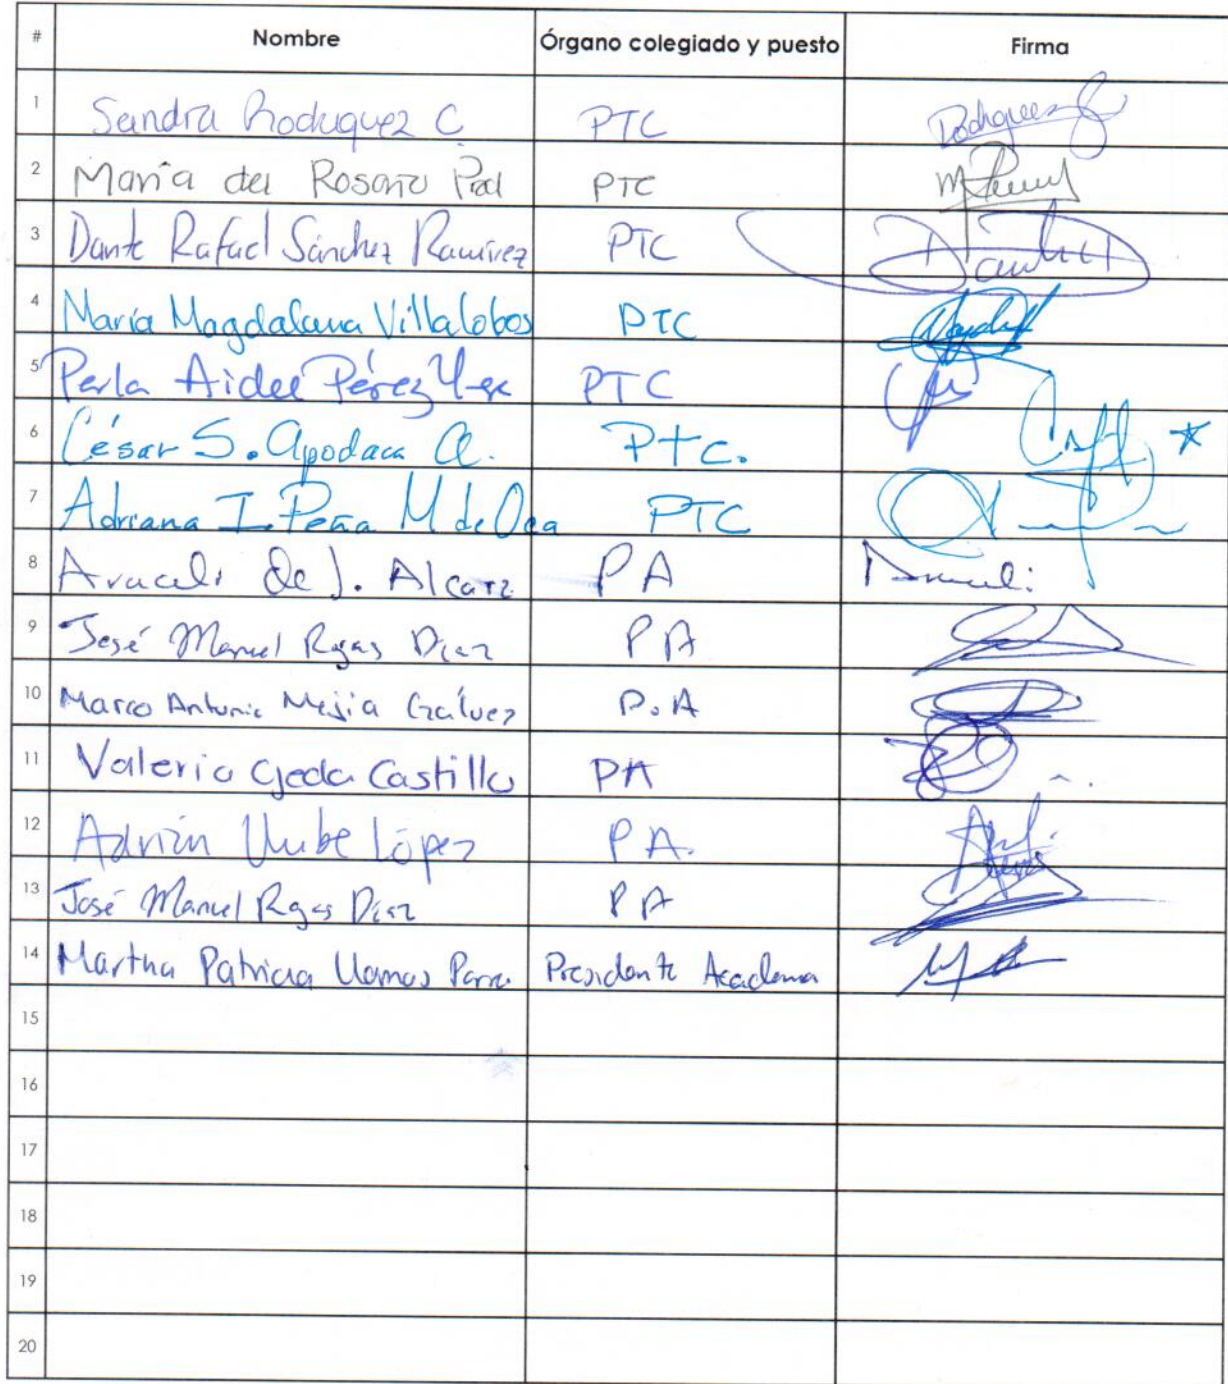 # Nombre Órgano colegiado y puesto Firma
1 Sandra Rodríguez C. PTC Rodríguez
2 María del Rosario PTC
3 Dante Rafael Sánchez Ramírez PTC
4 María Magdalena Villalobos PTC
5 Perla Aideé Pérez PTC
6 César S. Apodaca A. PTC.
7 Adriana I. Peña M de Oca PTC
8 Araceli de J. Alcaraz PA Araceli
9 José Manuel Rojas Díaz PA
10 Marco Antonio Mejía Gálvez P.A
11 Valeria Ojeda Castillo PA
12 Adrián Uribe López PA.
13 José Manuel Rojas Díaz PA
14 Martha Patricia Llamas Parra Presidente Academia
15
16
17
18
19
20